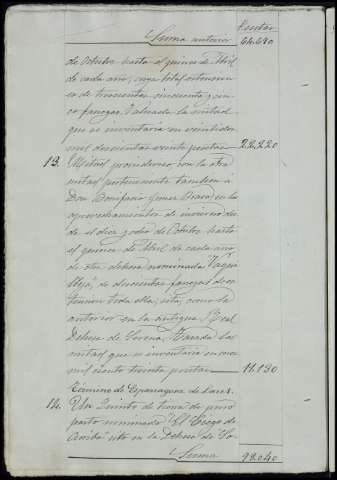 Pesetas
Suma anterior 64.680
de Octubre hasta el quince de Abril
de cada año, cuya total estension
es de trescientas cincuenta y cin-
co fanegas. Valuada la mitad
que se inventaría en veintidos
mil doscientas veinte pesetas 22.220
13. Mitad proindivisa con la otra
mitad perteneciente tambien á
Don Bonifacio Gomez Bravo en los
aprovechamientos de invierno des-
de el diez y ocho de Octubre hasta
el quince de Abril de cada año
de otra dehesa nominada
de doscientas fanegas de es-
tension toda ella, sita, como la
anterior en la antigua Real
Dehesa de Serena, Tasada la
mitad que se inventaría en once
mil ciento treinta pesetas 11.130
Término de Esparragosa de Lares.
14. Un Quinto de tierra de puro
pasto nominado "El Ciego de
Arriba" sito en la Dehesa de
Suma 98.040